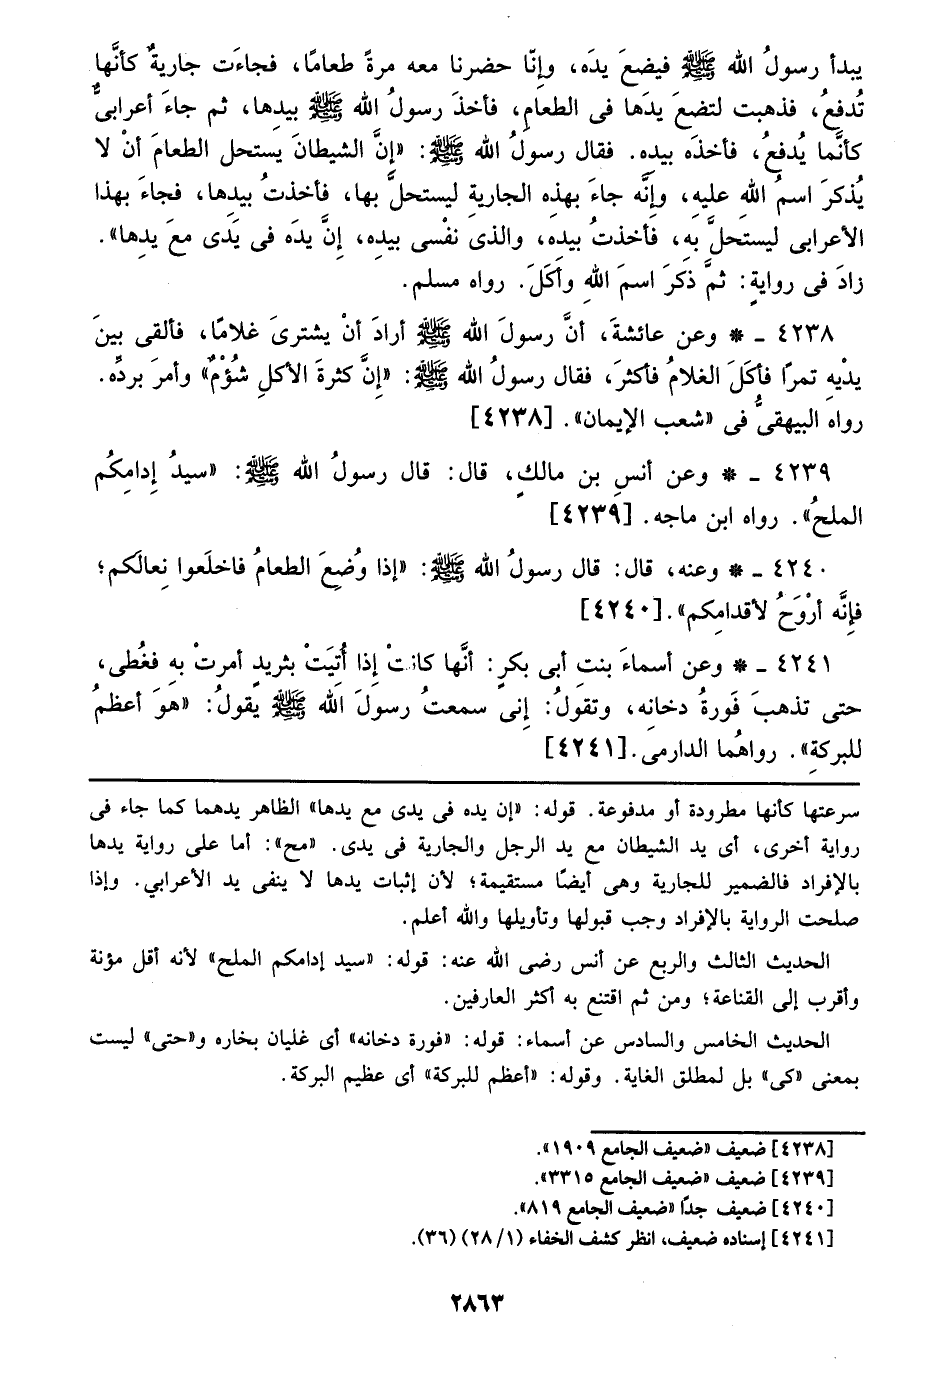 يبدأ رسولُ الله ﷺ فيضعَ يدَه، وإنّا حضرنا معه مرةً طعامًا، فجاءَت جاريةٌ كأنَّها
تُدفعُ، فذهبت لتضعَ يدَها فى الطعامِ، فأخذَ رسولُ الله ﷺ بيدِها، ثم جاءَ أعرابىٌّ
كأنَّما يُدفعُ، فأخذَه بيدِه. فقال رسولُ الله ﷺ: «إنَّ الشيطانَ يستحل الطعامَ أنْ لا
يُذكرَ اسمُ اللهِ عليهِ، وإنَّه جاءَ بهذِه الجاريةِ ليستحلَّ بها، فأخذتُ بيدِها، فجاءَ بهذا
الأعرابى ليستحلَّ بِه، فأخذتُ بيدِه، والذى نفْسى بيدِه، إنَّ يدَه فى يَدَى معَ يدِها».
زادَ فى روايةٍ: ثمَّ ذكرَ اسمَ اللهِ وأكَلَ. رواه مسلم.
٤٢٣٨ ـ * وعن عائشةَ، أنَّ رسولَ الله ﷺ أرادَ أنْ يشترىَ غلامًا، فألقى بينَ
يدْيهِ تمرًا فأكَلَ الغلامُ فأكثرَ، فقال رسولُ الله ﷺ: «إنَّ كثرةَ الأكلِ شؤْمٌ» وأمرَ بردِّه.
رواه البيهقىُّ فى «شعب الإيمان». [٤٢٣٨]
٤٢٣٩ ـ * وعن أنسِ بن مالكٍ، قال: قال رسولُ الله ﷺ: «سيدُ إِدامِكُم
الملحُ». رواه ابن ماجه. [٤٢٣٩]
٤٢٤٠ ـ * وعنه، قال: قال رسولُ الله ﷺ: «إذا وُضِعَ الطعامُ فاخلَعوا نِعالَكم؛
فإنَّه أرْوَحُ لأقدامِكم».[٤٢٤٠]
٤٢٤١ ـ * وعن أسماءَ بنتِ أبى بكرٍ: أنَّها كانتْ إذا أُتِيَتْ بثريدٍ أمرتْ بهِ فغُطى،
حتى تذهبَ فَورةُ دخانِه، وتقولُ: إنى سمعتُ رسولَ الله ﷺ يقولُ: «هوَ أعظمُ
للبركةِ». رواهُما الدارمى.[٤٢٤١]
سرعتها كأنها مطرودة أو مدفوعة. قوله: «إن يده فى يدى مع يدها» الظاهر يدهما كما جاء فى
رواية أخرى، أى يد الشيطان مع يد الرجل والجارية فى يدى. «مح»: أما على رواية يدها
بالإفراد فالضمير للجارية وهى أيضًا مستقيمة؛ لأن إثبات يدها لا ينفى يد الأعرابي. وإذا
صلحت الرواية بالإفراد وجب قبولها وتأويلها والله أعلم.
الحديث الثالث والربع عن أنس رضى الله عنه: قوله: «سيد إدامكم الملح» لأنه أقل مؤنة
وأقرب إلى القناعة؛ ومن ثم اقتنع به أكثر العارفين.
الحديث الخامس والسادس عن أسماء: قوله: «فورة دخانه» أى غليان بخاره و«حتى» ليست
بمعنى «كى» بل لمطلق الغاية. وقوله: «أعظم للبركة» أى عظيم البركة.
[٤٢٣٨] ضعيف «ضعيف الجامع ١٩٠٩».
[٤٢٣٩] ضعيف «ضعيف الجامع ٣٣١٥».
[٤٢٤٠] ضعيف جدًا «ضعيف الجامع ٨١٩».
[٤٢٤١] إسناده ضعيف، انظر كشف الخفاء (٢٨/١) (٣٦).
٢٨٦٣